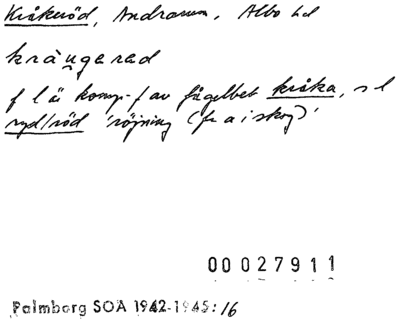 Kråkeröd, Andrarum, Albo hd
krångerad
f l är komp-f av fågelbet kråka, s l
ryd/röd 'röjning (fr a i skog)'
00027911
Palmborg SOÄ 1942-1945:16